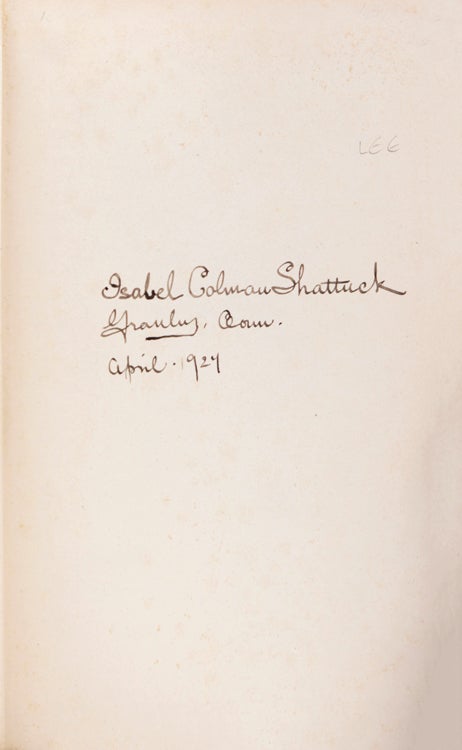 Isabel Colman Shattuck
Granby, Conn.
April. 1927